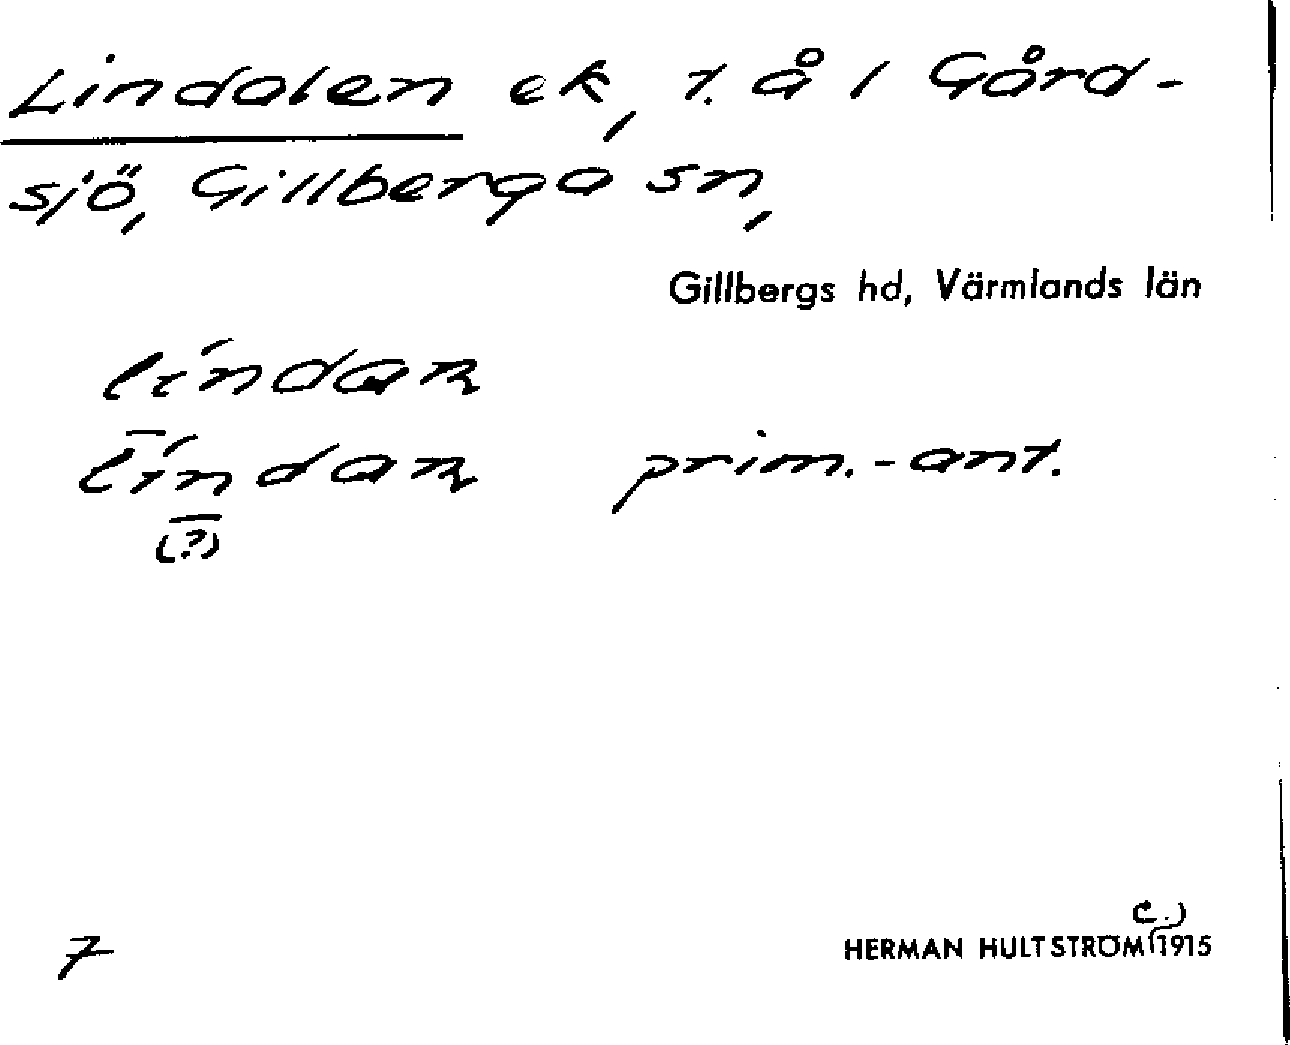 Lindalen ek, t. å i Gård-
sjö, Gillberga sn,
Gillbergs hd, Värmlands län
líndaɴ
líndaɴ prim.-ant.
(?)
7
HERMAN HULTSTRÖM (c.) 1915